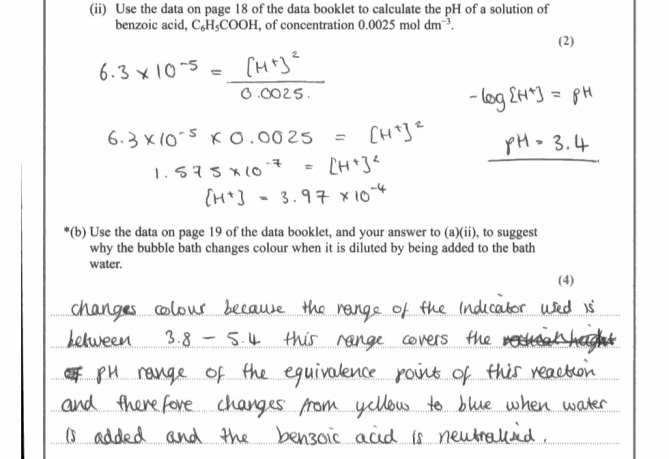 (ii) Use the data on page 18 of the data booklet to calculate the pH of a solution of
benzoic acid, C₆H₅COOH, of concentration 0.0025 mol dm⁻³.
(2)
6.3 × 10⁻⁵ = [H⁺]² / 0.0025.
-log [H⁺] = pH
6.3 × 10⁻⁵ × 0.0025 = [H⁺]²
pH = 3.4
1.575 × 10⁻⁷ = [H⁺]²
[H⁺] = 3.97 × 10⁻⁴
*(b) Use the data on page 19 of the data booklet, and your answer to (a)(ii), to suggest
why the bubble bath changes colour when it is diluted by being added to the bath
water.
(4)
changes colour because the range of the indicator used is
between 3.8 – 5.4 this range covers the
pH range of the equivalence point of this reaction
and therefore changes from yellow to blue when water
is added and the benzoic acid is neutralised.